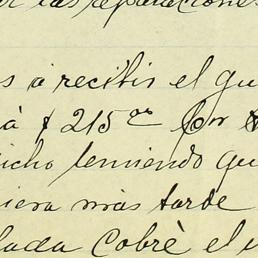 las reparaciones
s a recibir el gu
à $ 215.00 por
icho teniendo qu
iera más tarde
lada Cobrè el